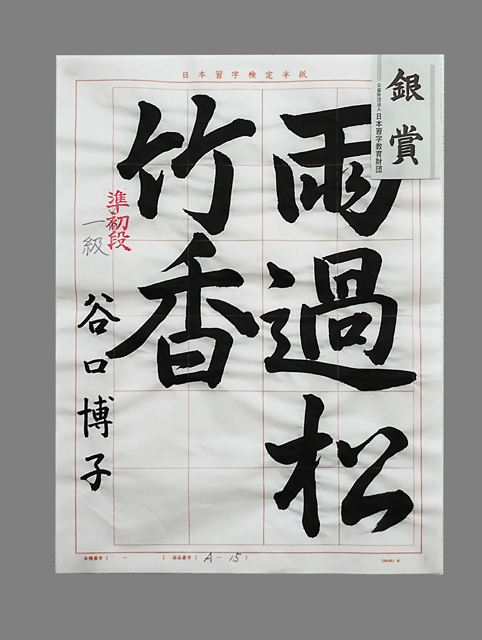 日本習字検定半紙
銀賞
公益財団法人 日本習字教育財団
雨過松
竹香
準初段
一級
谷口博子
会員番号( － ) 出品番号( A-15 )